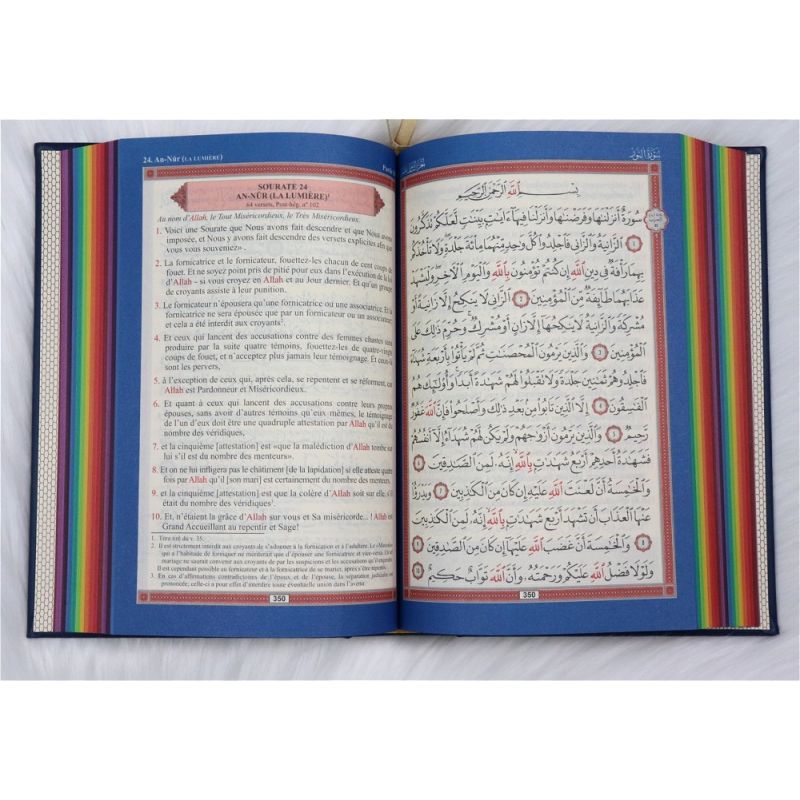 24. An-Nûr (LA LUMIÈRE)
SOURATE 24
AN-NÛR (LA LUMIÈRE)¹
64 versets, Post-hég. n° 102
Au nom d'Allah, le Tout Miséricordieux, le Très Miséricordieux.
1. Voici une Sourate que Nous avons fait descendre et que Nous avons
imposée, et Nous y avons fait descendre des versets explicites afin que
vous vous souveniez» .
2. La fornicatrice et le fornicateur, fouettez-les chacun de cent coups de
fouet. Et ne soyez point pris de pitié pour eux dans l'exécution de la loi
d'Allah - si vous croyez en Allah et au Jour dernier. Et qu'un groupe
de croyants assiste à leur punition.
3. Le fornicateur n'épousera qu'une fornicatrice ou une associatrice. Et la
fornicatrice ne sera épousée que par un fornicateur ou un associateur;
et cela a été interdit aux croyants².
4. Et ceux qui lancent des accusations contre des femmes chastes sans
produire par la suite quatre témoins, fouettez-les de quatre-vingts
coups de fouet, et n'acceptez plus jamais leur témoignage. Et ceux-là
sont les pervers,
5. à l'exception de ceux qui, après cela, se repentent et se réforment, car
Allah est Pardonneur et Miséricordieux.
6. Et quant à ceux qui lancent des accusations contre leurs propres
épouses, sans avoir d'autres témoins qu'eux mêmes, le témoignage
de l'un d'eux doit être une quadruple attestation par Allah qu'il est du
nombre des véridiques,
7. et la cinquième [attestation] est «que la malédiction d'Allah tombe sur
lui s'il est du nombre des menteurs».
8. Et on ne lui infligera pas le châtiment [de la lapidation] si elle atteste quatre
fois par Allah qu'il [son mari] est certainement du nombre des menteurs,
9. et la cinquième [attestation] est que la colère d'Allah soit sur elle, s'il
était du nombre des véridiques³.
10. Et, n'étaient la grâce d'Allah sur vous et Sa miséricorde... ! Allah est
Grand Accueillant au repentir et Sage!
1. Titre tiré du v. 35.
2. Il est strictement interdit aux croyants de s'adonner à la fornication et à l'adultère. Le
qui a l'habitude de forniquer ne mériterait que d'épouser une fornicatrice et vice-versa. Un
mariage ne saurait convenir aux croyants de par les suspicions et les accusations qu'il
Il est cependant possible au fornicateur et à la fornicatrice de se marier, après s'être repentis.
3. En cas d'affirmations contradictoires de l'époux, et de l'épouse, la séparation judiciaire est
prononcée; celle-ci a pour effet d'interdire toute éventuelle union dans l'avenir.
350
سورة النور
بسم الله الرحمن الرحيم
سُورَةٌ أَنزَلْنَٰهَا وَفَرَضْنَٰهَا وَأَنزَلْنَا فِيهَآ ءَايَٰتٍۭ بَيِّنَٰتٍ لَّعَلَّكُمْ تَذَكَّرُونَ
١ ٱلزَّانِيَةُ وَٱلزَّانِى فَٱجْلِدُوا۟ كُلَّ وَٰحِدٍ مِّنْهُمَا مِا۟ئَةَ جَلْدَةٍ وَلَا تَأْخُذْكُم
بِهِمَا رَأْفَةٌ فِى دِينِ ٱللَّهِ إِن كُنتُمْ تُؤْمِنُونَ بِٱللَّهِ وَٱلْيَوْمِ ٱلْءَاخِرِ وَلْيَشْهَدْ
عَذَابَهُمَا طَآئِفَةٌ مِّنَ ٱلْمُؤْمِنِينَ ٢ ٱلزَّانِى لَا يَنكِحُ إِلَّا زَانِيَةً أَوْ
مُشْرِكَةً وَٱلزَّانِيَةُ لَا يَنكِحُهَآ إِلَّا زَانٍ أَوْ مُشْرِكٌ وَحُرِّمَ ذَٰلِكَ عَلَى
ٱلْمُؤْمِنِينَ ٣ وَٱلَّذِينَ يَرْمُونَ ٱلْمُحْصَنَٰتِ ثُمَّ لَمْ يَأْتُوا۟ بِأَرْبَعَةِ شُهَدَآءَ
فَٱجْلِدُوهُمْ ثَمَٰنِينَ جَلْدَةً وَلَا تَقْبَلُوا۟ لَهُمْ شَهَٰدَةً أَبَدًا وَأُو۟لَٰٓئِكَ هُمُ
ٱلْفَٰسِقُونَ ٤ إِلَّا ٱلَّذِينَ تَابُوا۟ مِنۢ بَعْدِ ذَٰلِكَ وَأَصْلَحُوا۟ فَإِنَّ ٱللَّهَ غَفُورٌ
رَّحِيمٌ ٥ وَٱلَّذِينَ يَرْمُونَ أَزْوَٰجَهُمْ وَلَمْ يَكُن لَّهُمْ شُهَدَآءُ إِلَّآ أَنفُسُهُمْ
فَشَهَٰدَةُ أَحَدِهِمْ أَرْبَعُ شَهَٰدَٰتٍۭ بِٱللَّهِ إِنَّهُۥ لَمِنَ ٱلصَّٰدِقِينَ ٦
وَٱلْخَٰمِسَةُ أَنَّ لَعْنَتَ ٱللَّهِ عَلَيْهِ إِن كَانَ مِنَ ٱلْكَٰذِبِينَ ٧ وَيَدْرَؤُا۟
عَنْهَا ٱلْعَذَابَ أَن تَشْهَدَ أَرْبَعَ شَهَٰدَٰتٍۭ بِٱللَّهِ إِنَّهُۥ لَمِنَ ٱلْكَٰذِبِينَ
٨ وَٱلْخَٰمِسَةَ أَنَّ غَضَبَ ٱللَّهِ عَلَيْهَآ إِن كَانَ مِنَ ٱلصَّٰدِقِينَ ٩
وَلَوْلَا فَضْلُ ٱللَّهِ عَلَيْكُمْ وَرَحْمَتُهُۥ وَأَنَّ ٱللَّهَ تَوَّابٌ حَكِيمٌ ١٠
350